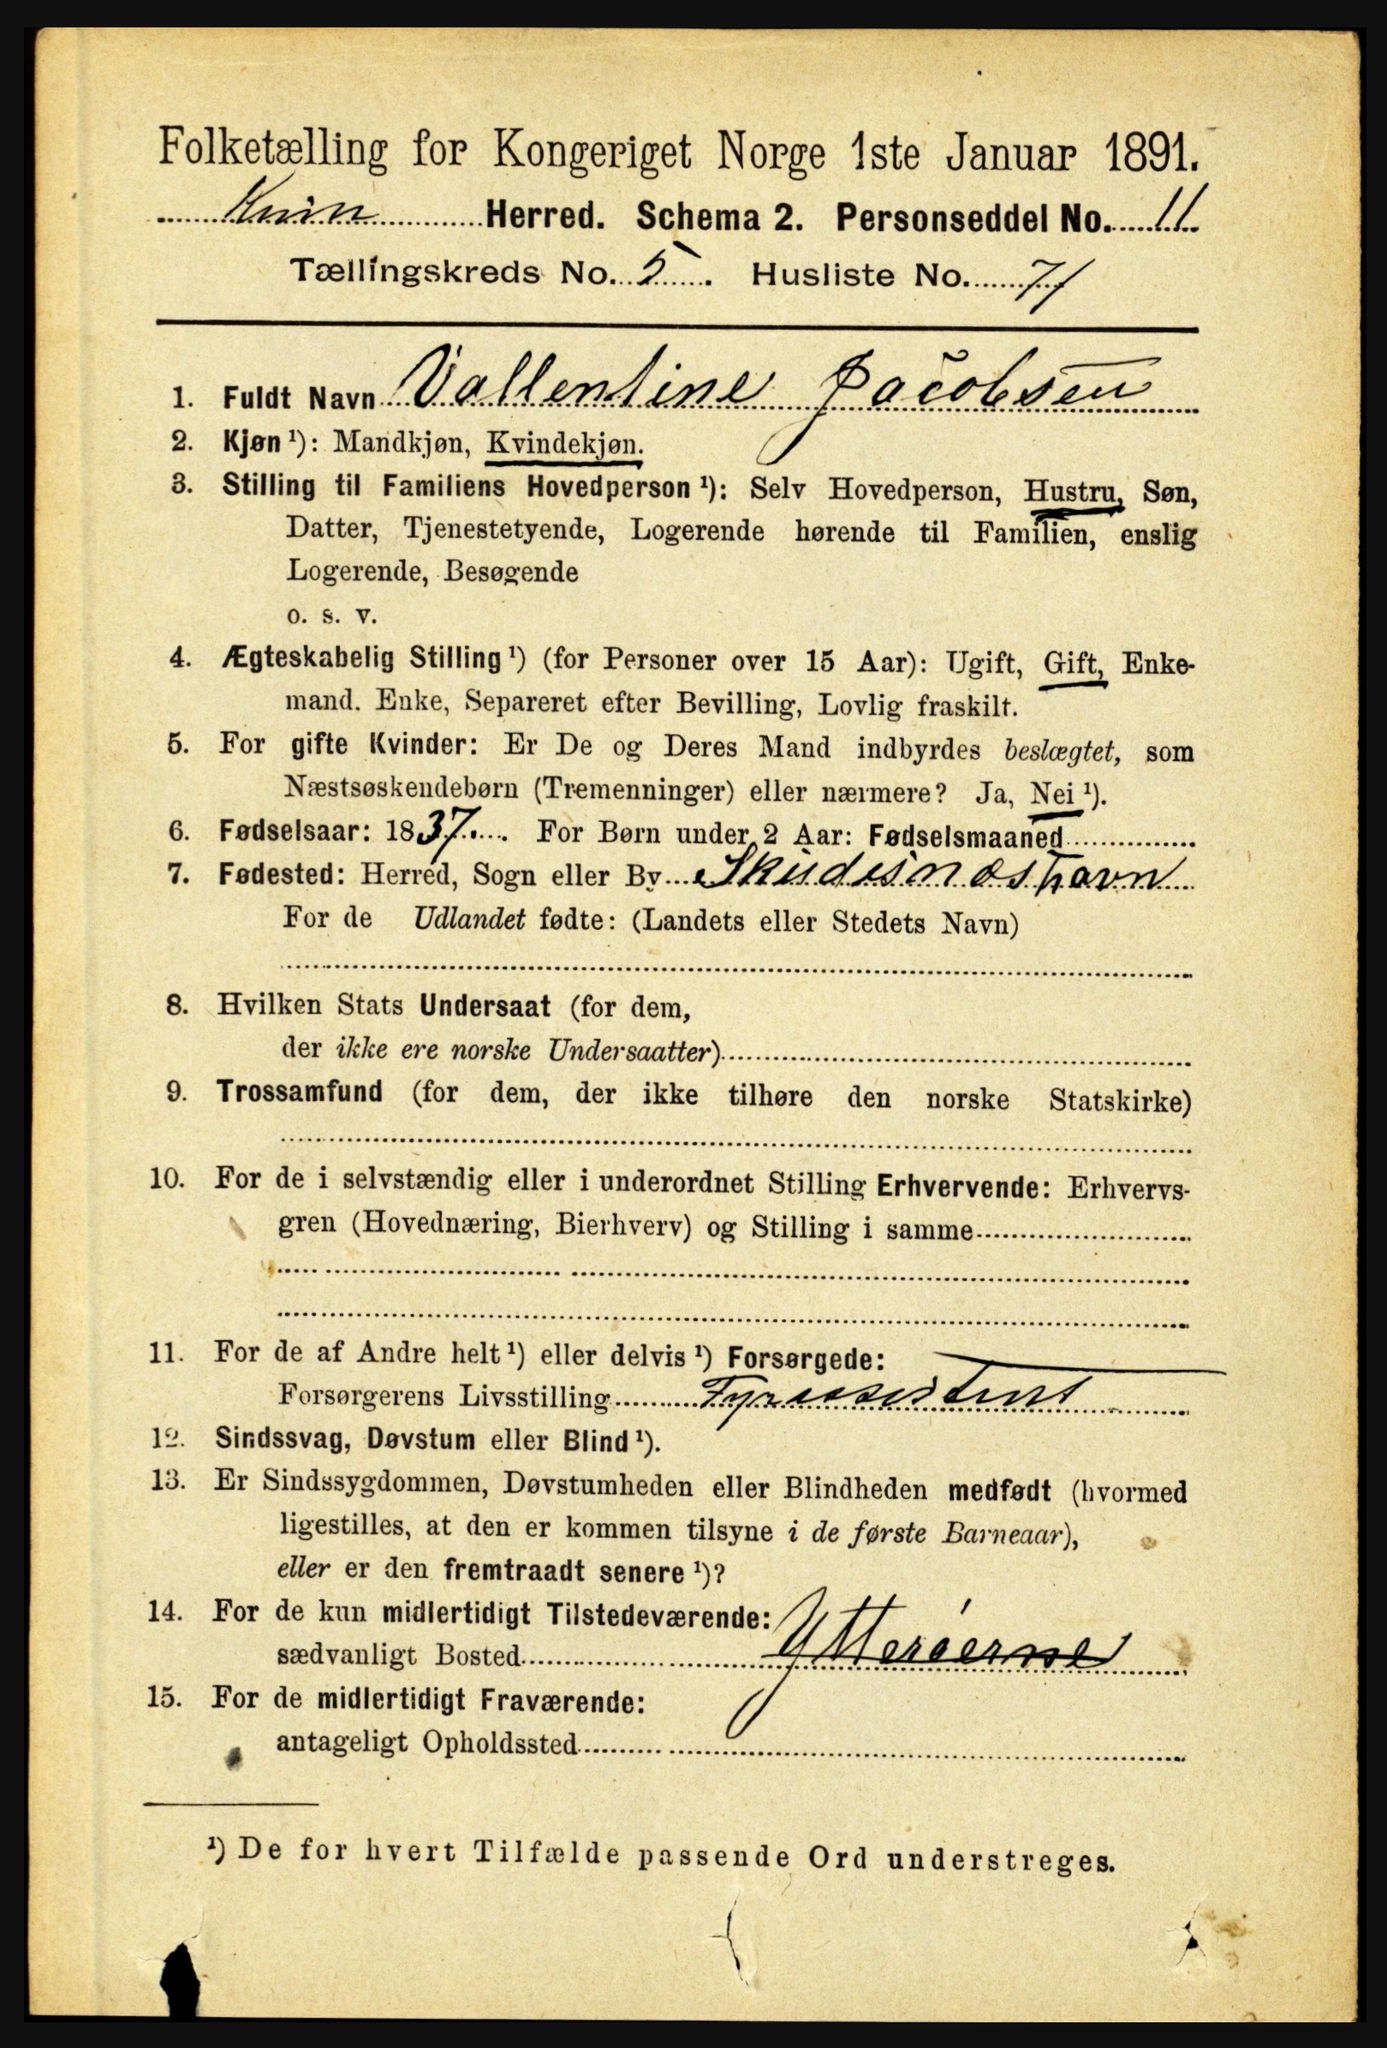 Folketælling for Kongeriget Norge 1ste Januar 1891.
Kinn Herred. Schema 2. Personseddel No. 11
Tællingskreds No. 5. Husliste No. 71
1. Fuldt Navn Vallentine Jacobsen
2. Kjøn ¹): Mandkjøn, Kvindekjøn.
3. Stilling til Familiens Hovedperson ¹): Selv Hovedperson, Hustru, Søn,
Datter, Tjenestetyende, Logerende hørende til Familien, enslig
Logerende, Besøgende
o. s. v.
4. Ægteskabelig Stilling ¹) (for Personer over 15 Aar): Ugift, Gift, Enke-
mand. Enke, Separeret efter Bevilling, Lovlig fraskilt.
5. For gifte Kvinder: Er De og Deres Mand indbyrdes beslægtet, som
Næstsøskendebørn (Tremenninger) eller nærmere? Ja, Nei ¹).
6. Fødselsaar: 1837. For Børn under 2 Aar: Fødselsmaaned
7. Fødested: Herred, Sogn eller By Skudesnæshavn
For de Udlandet fødte: (Landets eller Stedets Navn)
8. Hvilken Stats Undersaat (for dem,
der ikke ere norske Undersaatter)
9. Trossamfund (for dem, der ikke tilhøre den norske Statskirke)
10. For de i selvstændig eller i underordnet Stilling Erhvervende: Erhvervs-
gren (Hovednæring, Bierhverv) og Stilling i samme
11. For de af Andre helt ¹) eller delvis ¹) Forsørgede:
Forsørgerens Livsstilling Fyrassistent
12. Sindssvag, Døvstum eller Blind ¹).
13. Er Sindssygdommen, Døvstumheden eller Blindheden medfødt (hvormed
ligestilles, at den er kommen tilsyne i de første Barneaar),
eller er den fremtraadt senere ¹)?
14. For de kun midlertidigt Tilstedeværende:
sædvanligt Bosted Ytterøerne
15. For de midlertidigt Fraværende:
antageligt Opholdssted
¹) De for hvert Tilfælde passende Ord understreges.